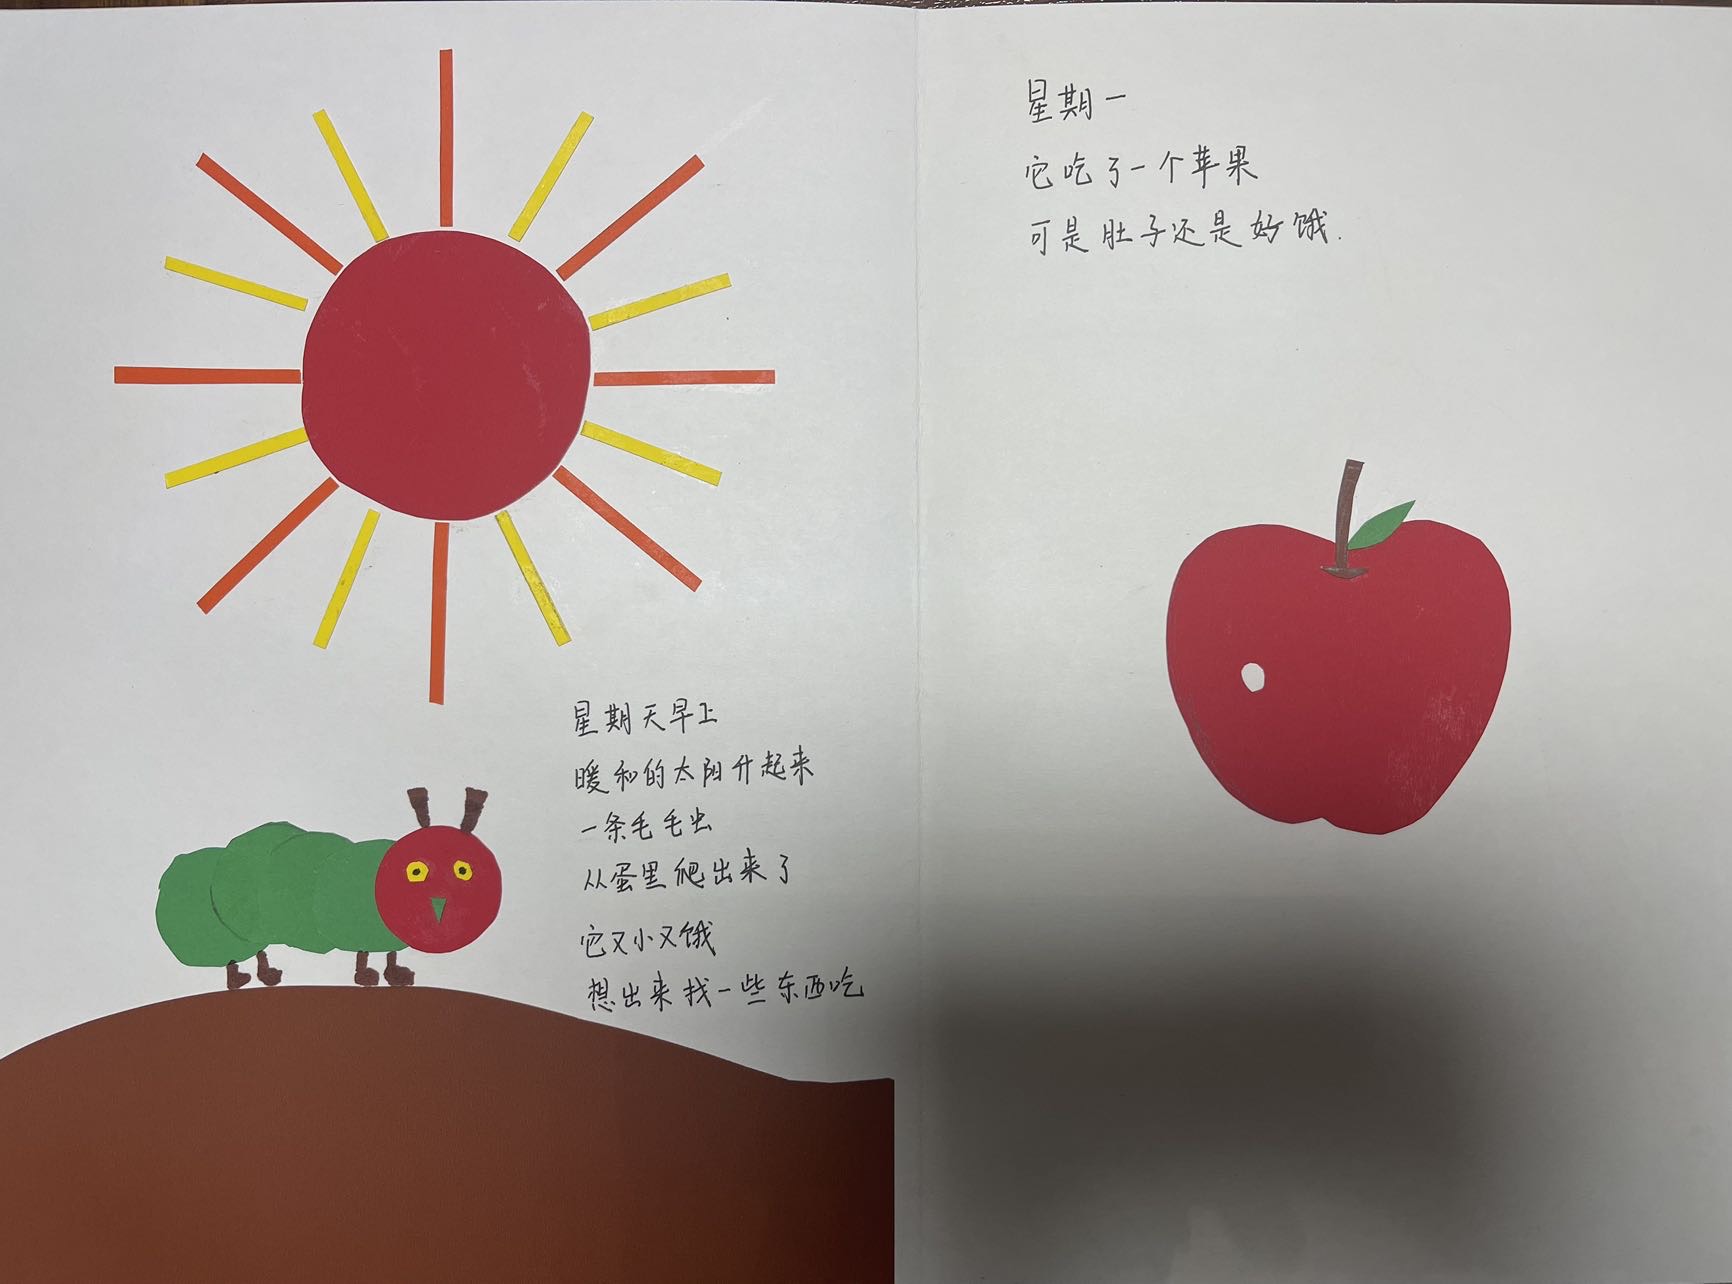 星期天早上
暖和的太阳升起来
一条毛毛虫
从蛋里爬出来了
它又小又饿
想出来找一些东西吃
星期一
它吃了一个苹果
可是肚子还是好饿.